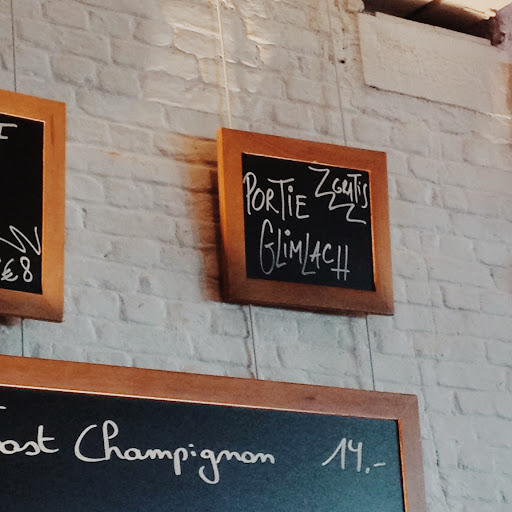 €8
PORTIE GRATIS
GLIMLACH
Toast Champignon 14.-